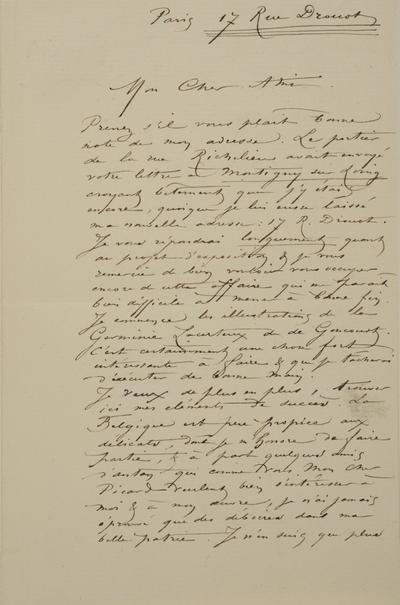 Paris 17 Rue Drouot
Mon Cher Ami
Prenez s'il vous plait bonne
note de mon adresse. Le portier
de la rue Richelieu avait envoyé
votre lettre à Montigny sur Loing
croyant bêtement que j'y étais
encore, quoique je lui eusse laissé
ma nouvelle adresse: 17 R. Drouot.
Je vous répondrai longuement quant
au projet d'exposition & je vous
remercie de bien vouloir vous occuper
encore de cette affaire qui me parait
bien difficile à mener à bonne fin.
Je commence les illustrations de la
Germinie Lacerteux de de Goncourt.
C'est certainement une chose fort
intéressante à faire & que je tacherai
d'exécuter de bonne main.
Je veux de plus en plus, trouver
ici mes éléments de succès. La
Belgique est peu propice aux
délicats, dont je m'honore de faire
partie, & à part quelques amis
d'antan qui comme vous, mon cher
Picard veulent bien s'intéresser à
moi & à mon œuvre, je n'ai jamais
éprouvé que des déboires dans ma
belle patrie. Je n'en suis que plus